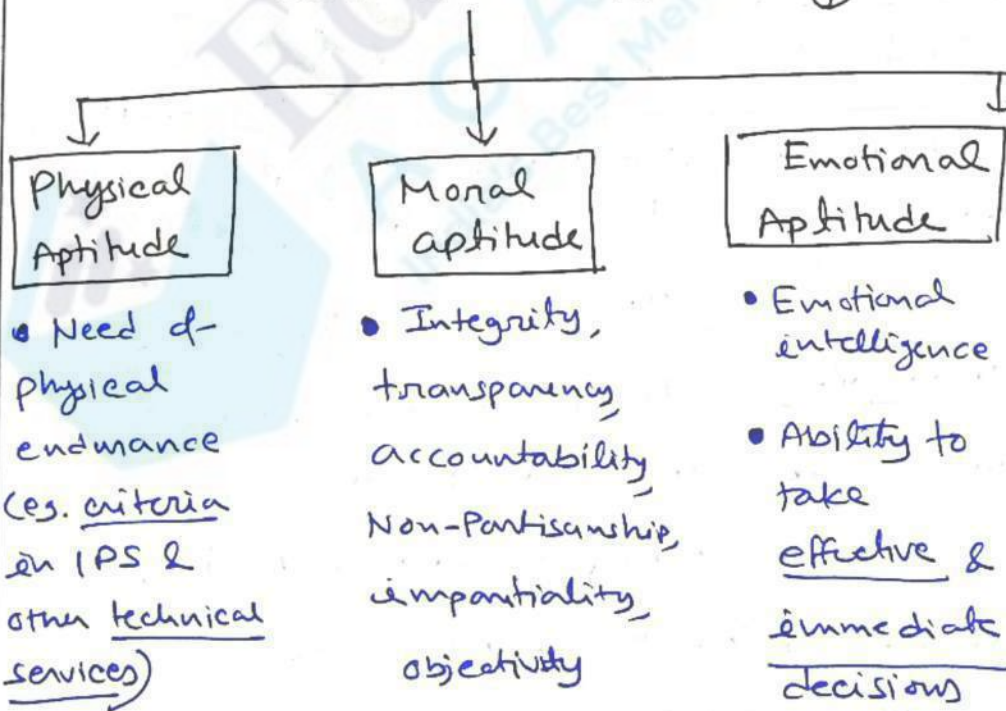 Physical
Aptitude
• Need of
physical
endurance
(eg. criteria
in IPS &
other technical
services)
Moral
aptitude
• Integrity,
transparency,
accountability,
Non-Partisanship,
impartiality,
objectivity
Emotional
Aptitude
• Emotional
intelligence
• Ability to
take
effective &
immediate
decisions